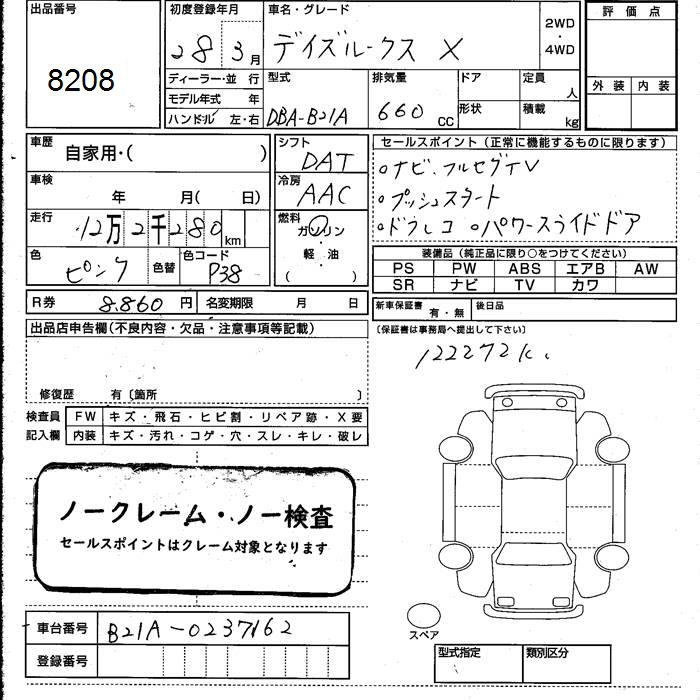 出品番号
8208
初度登録年月
28 3月
車名・グレード
デイズルークス X
2WD
・
4WD
評価点
外装 内装
ディーラー・並 行
モデル年式 年
ハンドル 左・右
型式
DBA-B21A
排気量
660 CC
ドア
形状
定員
人
積載
kg
車歴
自家用・( )
シフト
DAT
車検
年 月( 日)
冷房
AAC
走行
12万2千280 km
燃料
ガソリン
・
軽・油
( )
色
ピンク
色替
色コード
P38
R券 8.860 円 名変期限 月 日
セールスポイント(正常に機能するものに限ります)
○ナビ、フルセグTV
○プッシュスタート
○ドラレコ ○パワースライドドア
装備品(純正品に限り○をつけてください)
PS PW ABS エアB AW
SR ナビ TV カワ
新車保証書 有・無 後日品
〔保証書は事務局へ提出して下さい〕
出品店申告欄(不良内容・欠品・注意事項等記載)
122272k.
修復歴 有〔箇所 〕
検査員
記入欄
FW キズ・飛石・ヒビ割・リペア跡・X要
内装 キズ・汚れ・コゲ・穴・スレ・キレ・破レ
ノークレーム・ノー検査
セールスポイントはクレーム対象となります
車台番号 B21A-0237162
登録番号
スペア
型式指定 類別区分